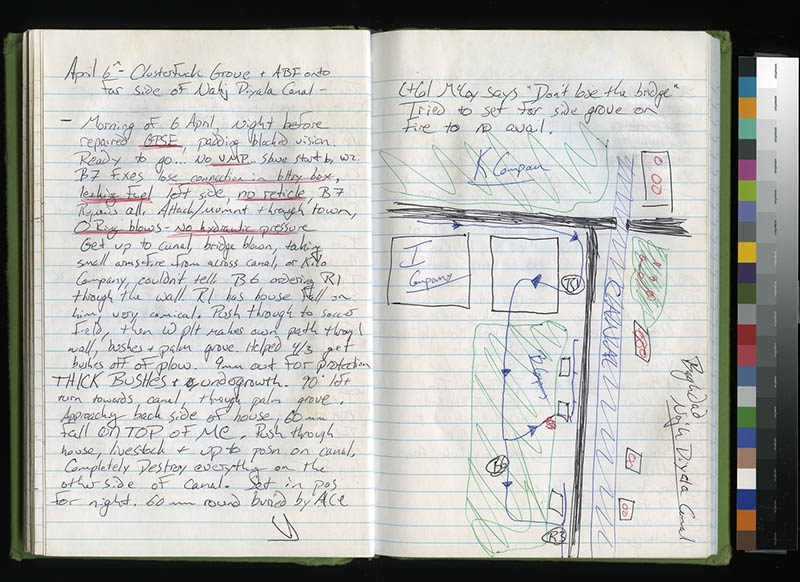 April 6th - Clusterfuck Grove + ABF onto
far side of Nahij Diyala Canal -
- Morning of 6 April, night before
repaired GPSE, padding blocked vision.
Ready to go... No VMP... Slave start by W2.
B7 fixes lose connection in bttry box,
leaking fuel left side, no reticle, B7
repairs all. Attack/Movmnt through town,
O Ring blows - No hydraulic pressure
Get up to canal, bridge blown, taking
small arms fire from across canal, or Kilo
Company, couldn't tell. B6 ordering R1
through the wall R1 has house fall on
him, very comical. Push through to soccer
field, then W plt makes own path through
wall, bushes + palm grove. Helped 4/3 get
bushes off of plow. 9mm out for protection
THICK BUSHES + undergrowth. 90° left
turn towards canal, through palm grove.
Approaching back side of house, 60mm
fall ON TOP OF ME. Push through
house, livestock + up to posn on canal,
Completely Destroy everything on the
other side of Canal. Set in pos
for night. 60mm round buried by ACE
LtCol McCoy says "Don't lose the bridge"
Tried to set far side grove on
fire to no avail.
K Company
I
Company
R1
CANAL
Baghdad
Nahij Diyala Canal
R3